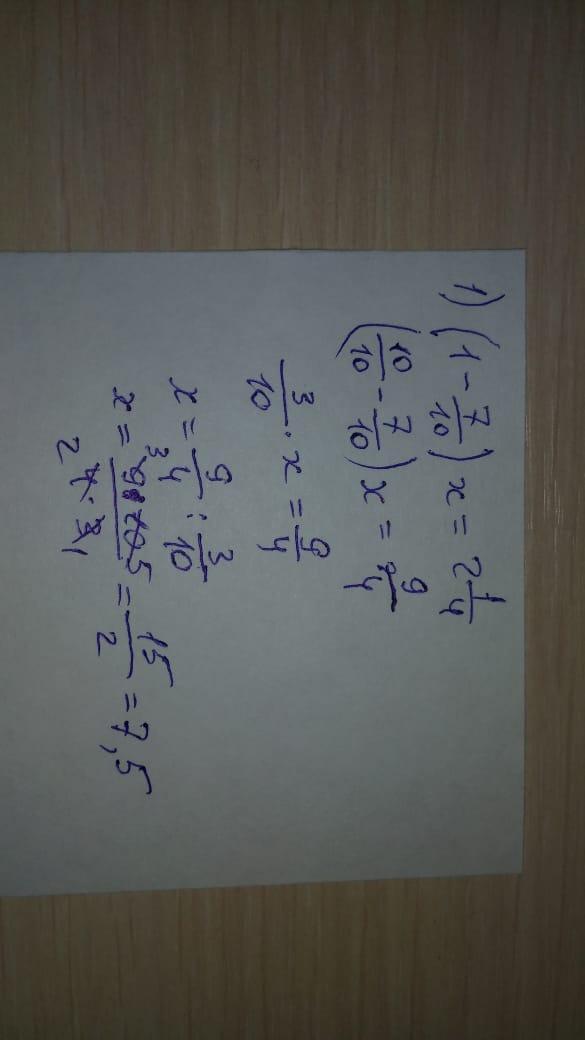 1) (1 - 7/10) x = 2 1/4
(10/10 - 7/10) x = 9/4
3/10 · x = 9/4
x = 9/4 : 3/10
x = 9 · 10 / 4 · 3 = 15/2 = 7,5